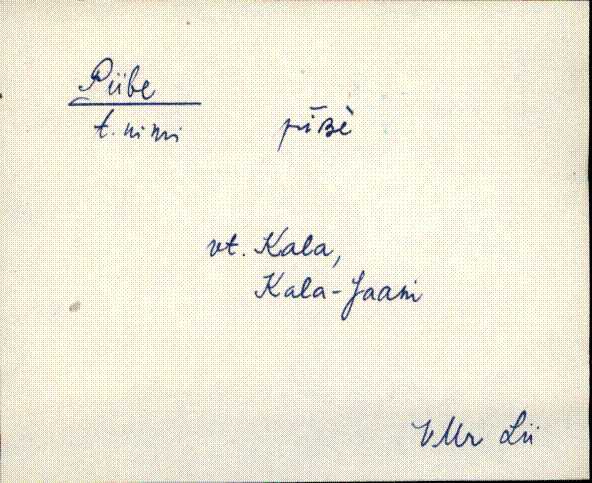 Piibe
t. nimi pīʙè
vt. Kala,
Kala-Jaani
VMr Lii